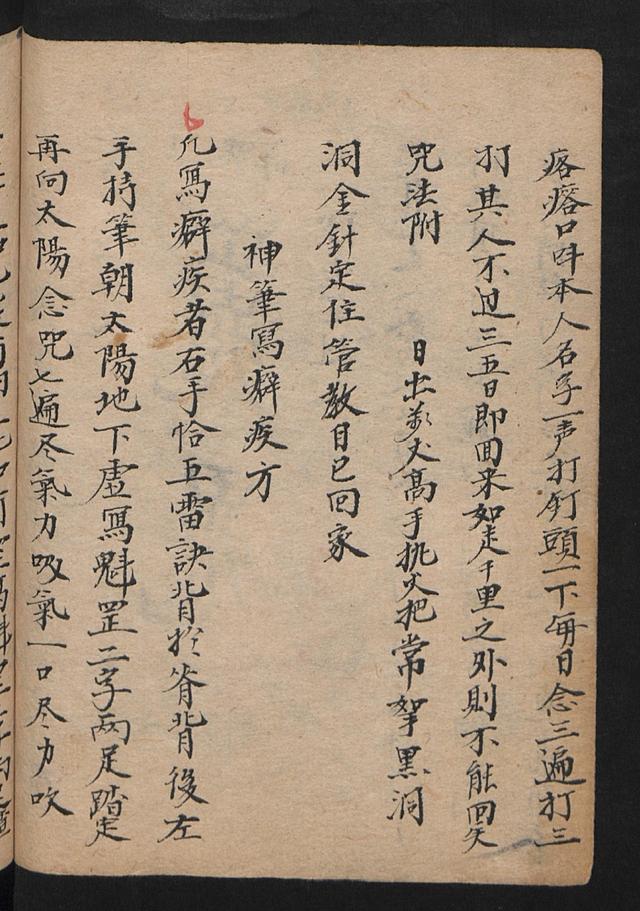 咯㗖口呌本人名字一声打釘頭一下每日念三遍打三
打其人不过三五日即回来如走千里之外則不能回矣
咒法附　日出萬丈高手挑火把常拏黑洞
洞金針定住管教日已回家
神筆寫癖疾方
凡寫癖疾者右手恰五雷訣背扵脊背後左
手持筆朝太陽地下虛寫魁罡二字两足踏定
再向太陽念咒七遍尽氣力吸氣一口尽力吹